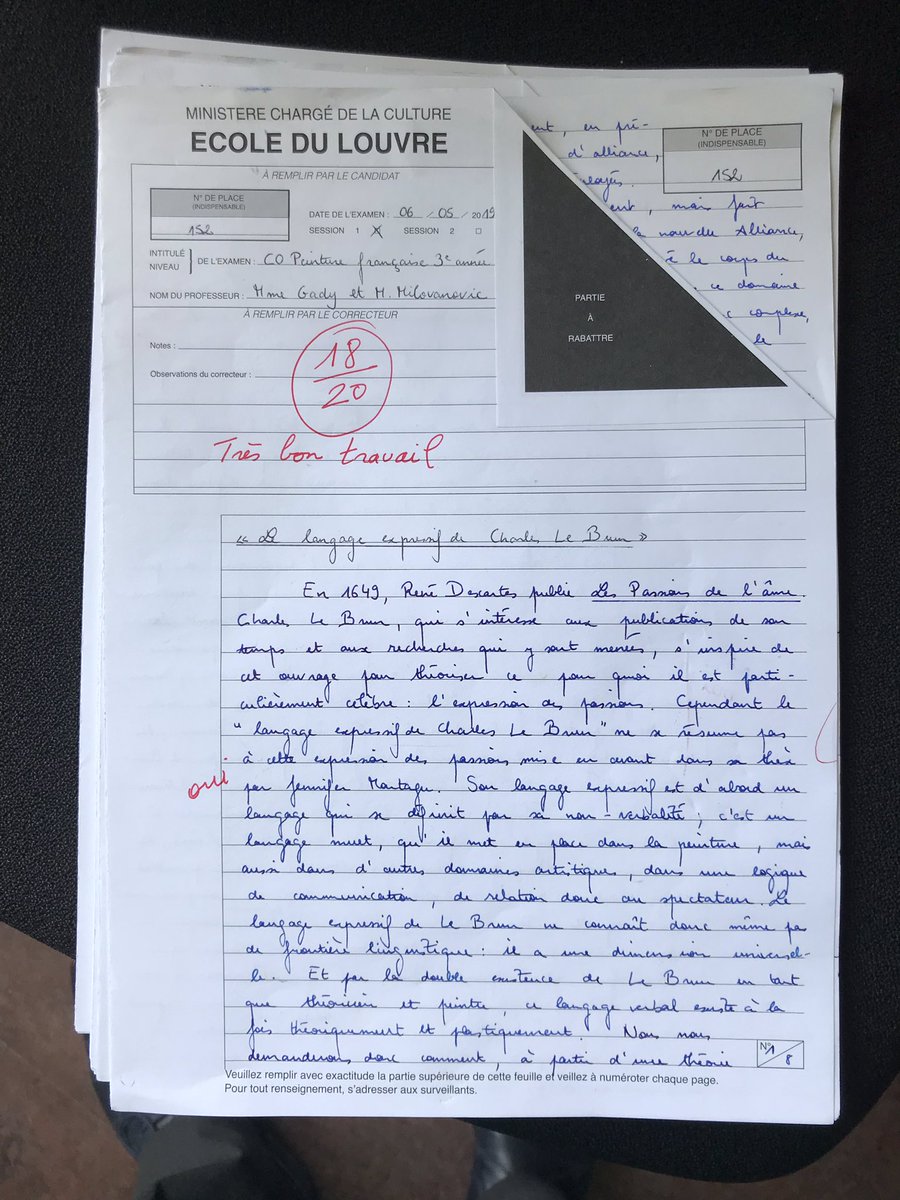 MINISTERE CHARGÉ DE LA CULTURE
ECOLE DU LOUVRE
À REMPLIR PAR LE CANDIDAT
N° DE PLACE
(INDISPENSABLE)
152
DATE DE L'EXAMEN : 06 / 05 / 2019
SESSION 1 X SESSION 2 □
INTITULÉ
NIVEAU
DE L'EXAMEN : CO Peinture française 3e année
NOM DU PROFESSEUR : Mme Gady et M. Milovanovic
À REMPLIR PAR LE CORRECTEUR
Notes :
Observations du correcteur :
18
20
Très bon travail
ent, en pré-
d'alliance,
ent, mais fait
la nouvelle Alliance,
le corps du
ce domaine
complexe,
le
N° DE PLACE
(INDISPENSABLE)
152
PARTIE
À
RABATTRE
« Le langage expressif de Charles Le Brun »
En 1649, René Descartes publie Les Passions de l'âme.
Charles Le Brun, qui s'intéresse aux publications de son
temps et aux recherches qui y sont menées, s'inspire de
cet ouvrage pour théoriser ce pour quoi il est parti-
culièrement célèbre : l'expression des passions. Cependant le
"langage expressif de Charles Le Brun" ne se résume pas
à cette expression des passions mise en avant dans sa thèse
oui
par Jennifer Montagu. Son langage expressif est d'abord un
langage qui se définit par sa non-verbalité ; c'est un
langage muet, qu'il met en place dans la peinture, mais
aussi dans d'autres domaines artistiques, dans une logique
de communication, de relation donc au spectateur. Le
langage expressif de Le Brun ne connaît donc même pas
de frontière linguistique : il a une dimension universel-
le. Et par la double existence de Le Brun en tant
que théoricien et peintre, ce langage verbal existe à la
fois théoriquement et plastiquement. Nous nous
demanderons donc comment, à partir d'une théorie
N° 1/8
Veuillez remplir avec exactitude la partie supérieure de cette feuille et veillez à numéroter chaque page.
Pour tout renseignement, s'adresser aux surveillants.